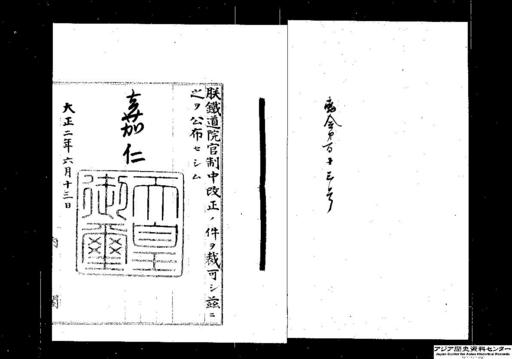 勅令第百十三号
朕鐵道院官制中改正ノ件ヲ裁可シ茲ニ
之ヲ公布セシム
嘉仁
天皇
御璽
大正二年六月十三日
内閣
アジア歴史資料センター
Japan Center for Asian Historical Records